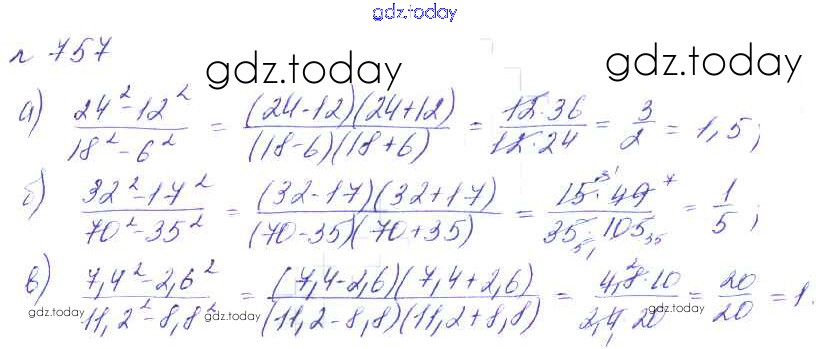 gdz.today
№ 757
gdz.today gdz.today
а) (24² - 12²)/(18² - 6²) = ((24-12)(24+12))/((18-6)(18+6)) = (12·36)/(12·24) = 3/2 = 1,5;
б) (32² - 17²)/(70² - 35²) = ((32-17)(32+17))/((70-35)(70+35)) = (15·49)/(35·105) = 1/5;
в) (7,4² - 2,6²)/(11,2² - 8,8²) = ((7,4-2,6)(7,4+2,6))/((11,2-8,8)(11,2+8,8)) = (4,8·10)/(2,4·20) = 20/20 = 1.
gdz.today gdz.today gdz.today